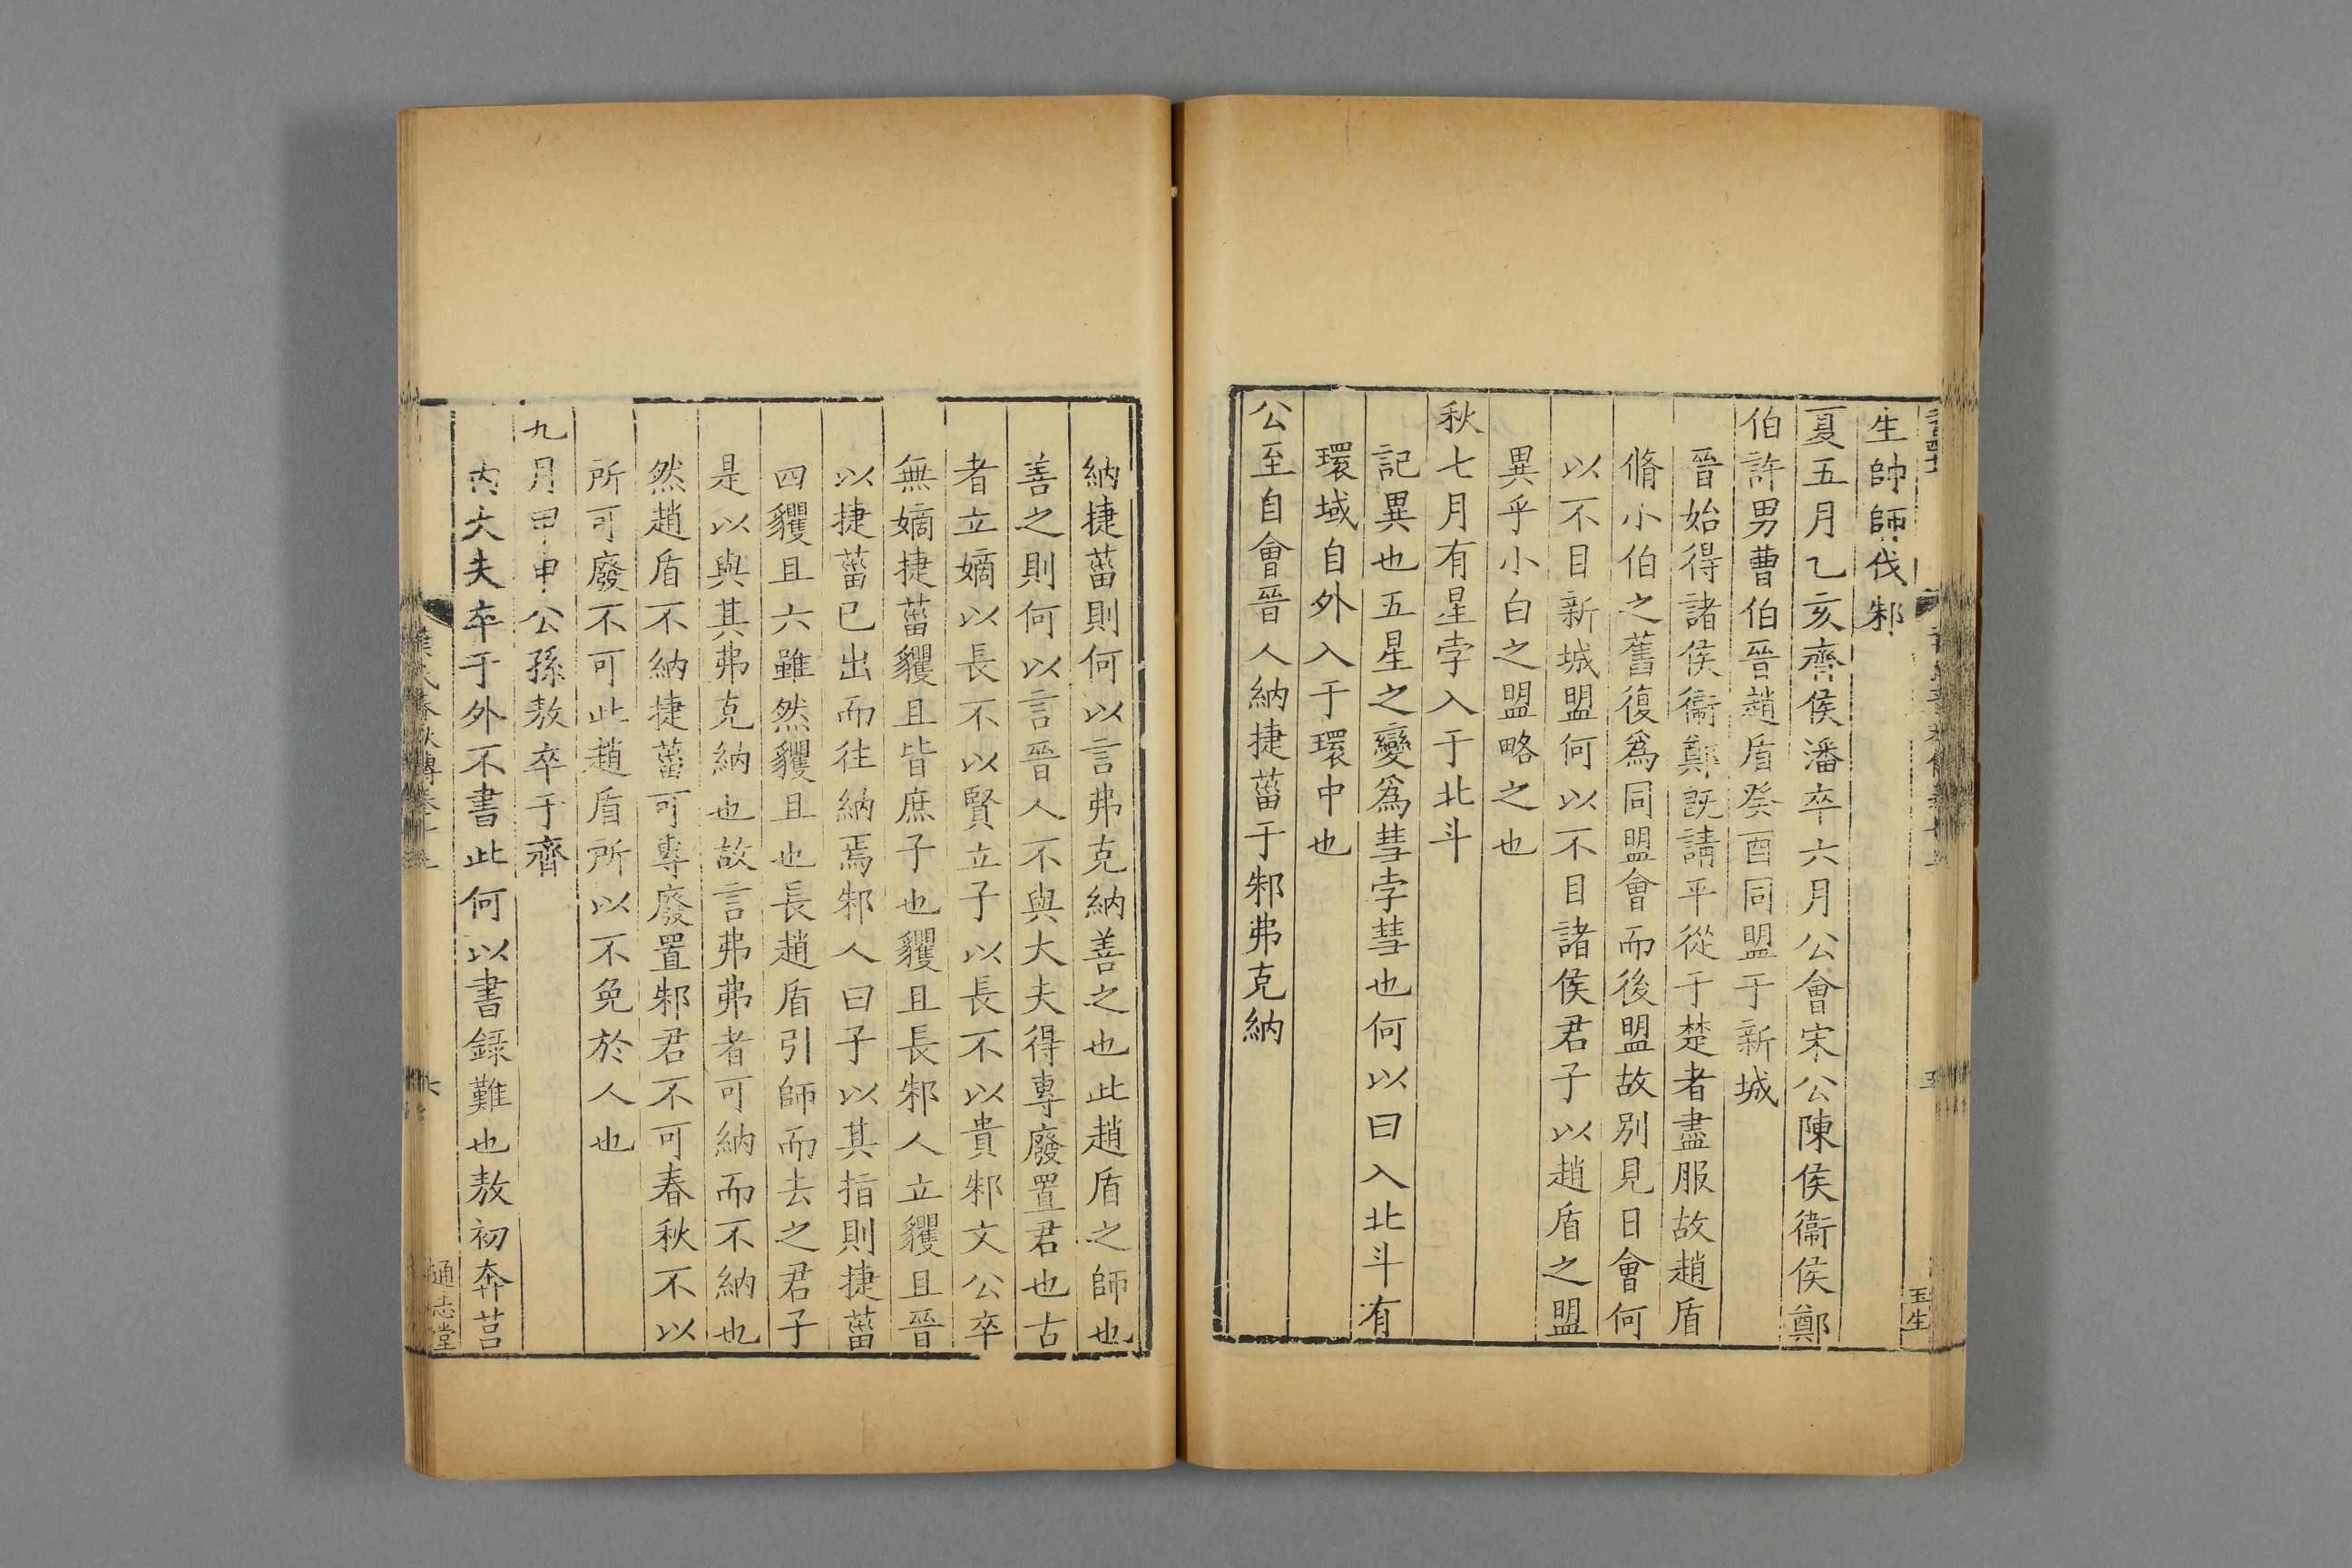 生帥師伐邾
夏五月乙亥齊侯潘卒六月公會宋公陳侯衞侯鄭
伯許男曹伯晉趙盾癸酉同盟于新城
晉始得諸侯衞鄭旣請平從于楚者盡服故趙盾
脩小伯之舊復爲同盟會而後盟故别見日會何
以不目新城盟何以不目諸侯君子以趙盾之盟
異乎小白之盟略之也
秋七月有星孛入于北斗
記異也五星之變爲彗孛彗也何以曰入北斗有
環域自外入于環中也
公至自會晉人納捷菑于邾弗克納
納捷菑則何以言弗克納善之也此趙盾之師也
善之則何以言晉人不與大夫得專廢置君也古
者立嫡以長不以賢立子以長不以貴邾文公卒
無嫡捷菑貜且皆庶子也貜且長邾人立貜且晉
以捷菑已出而往納焉邾人曰子以其指則捷菑
四貜且六雖然貜且也長趙盾引師而去之君子
是以與其弗克納也故言弗弗者可納而不納也
然趙盾不納捷菑可專廢置邾君不可春秋不以
所可廢不可此趙盾所以不免於人也
九月甲申公孫敖卒于齊
内大夫卒于外不書此何以書録難也敖初奔莒
通志堂
玉生